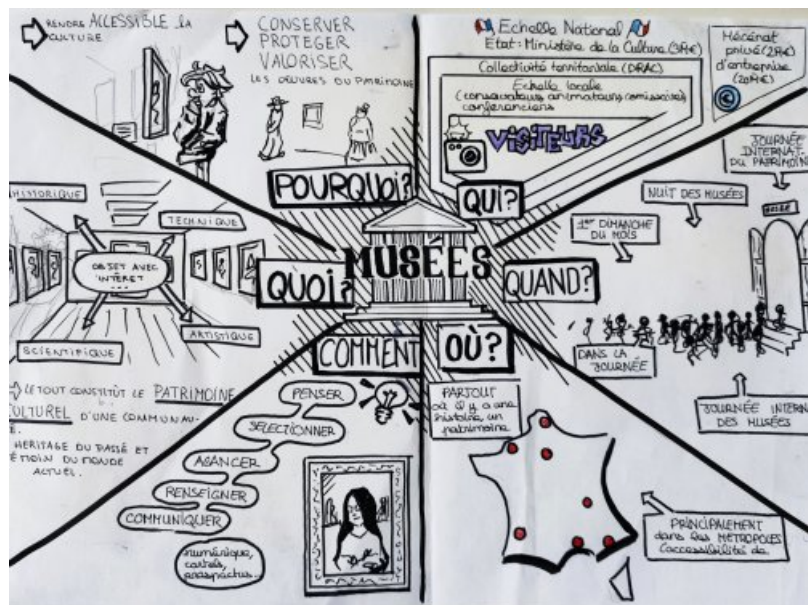 RENDRE ACCESSIBLE la
CULTURE
CONSERVER
PROTEGER
VALORISER
LES OEUVRES DU PATRIMOINE
POURQUOI?
Echelle National
Etat: Ministère de la Culture
Collectivité territoriale (DRAC)
Echelle locale
(conservateurs, animateurs,
conférenciers
VISITEURS
QUI?
Mécénat
privé
d'entreprise
JOURNÉE
INTERNAT.
DU PATRIMOIN
NUIT DES MUSÉES
1er DIMANCHE
DU MOIS
MUSÉE
QUAND?
DANS LA
JOURNÉE
JOURNÉE INTERN
DES MUSÉES
MUSÉES
HISTORIQUE
TECHNIQUE
OBJET AVEC
INTÉRET
...
SCIENTIFIQUE
ARTISTIQUE
QUOI?
LE TOUT CONSTITÜT LE PATRIMOINE
CULTUREL D'UNE COMMUNAU-
HERITAGE DU PASSÉ ET
TÉMOIN DU MONDE
ACTUEL.
COMMENT
PENSER
SELECTIONNER
AGANCER
RENSEIGNER
COMMUNIQUER
numérique,
cartels,
prospectus...
OÙ?
PARTOUT
où il y a une
histoire, un
patrimoine
PRINCIPALEMENT
dans les METROPOLES
(accessibilité de